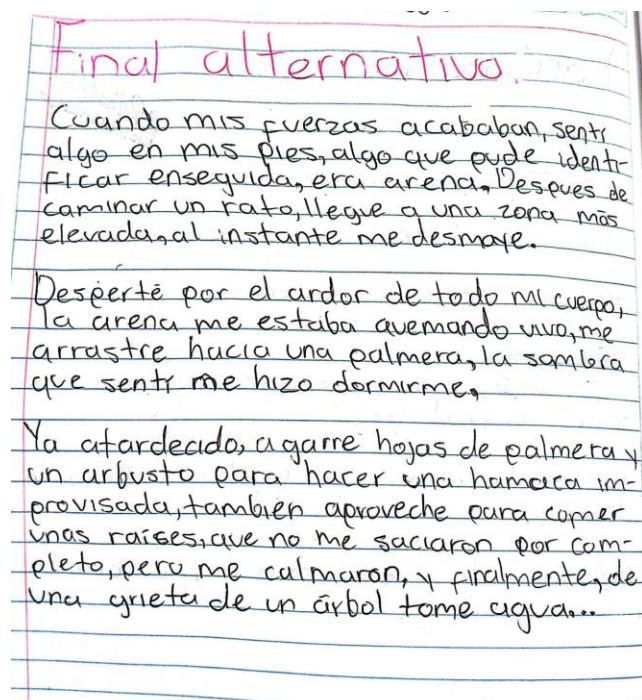 Final alternativo.
Cuando mis fuerzas acababan, sentí
algo en mis pies, algo que pude identi-
ficar enseguida, era arena. Despues de
caminar un rato, llegue a una zona más
elevada, al instante me desmaye.
Desperté por el ardor de todo mi cuerpo,
la arena me estaba quemando vivo, me
arrastre hacia una palmera, la sombra
que sentí me hizo dormirme.
Ya atardecido, agarre hojas de palmera y
un arbusto para hacer una hamaca im-
provisada, tambien aproveche para comer
unas raíses, que no me saciaron por com-
pleto, pero me calmaron, y finalmente, de
una grieta de un árbol tome agua...